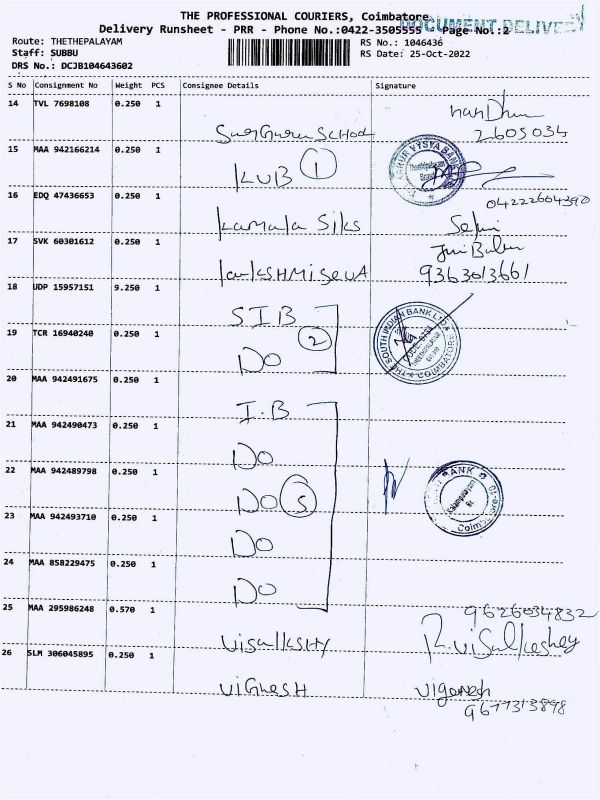 THE PROFESSIONAL COURIERS, Coimbatore
DOCUMENT DELIVE
Delivery Runsheet - PRR - Phone No.:0422-3505555 Page No.:2
Route: THETHEPALAYAM RS No.: 1046436
Staff: SUBBU RS Date: 25-Oct-2022
DRS No.: DCJB104643602
S No Consignment No Weight PCS Consignee Details Signature
14 TVL 7698108 0.250 1
2605034
15 MAA 942166214 0.250 1
KVB 1
KARUR VYSYA BANK
04222604390
16 EDQ 47436653 0.250 1
Kamala Silks Selvi
17 SVK 60301612 0.250 1
9363013661
18 UDP 15957151 9.250 1
SIB
THE SOUTH INDIAN BANK LTD
COIMBATORE
19 TCR 16940240 0.250 1
DO 2
20 MAA 942491675 0.250 1
I.B
21 MAA 942490473 0.250 1
DO
22 MAA 942489798 0.250 1
DO 5
BANK
23 MAA 942493710 0.250 1
DO
24 MAA 858229475 0.250 1
DO
25 MAA 295986248 0.570 1
9626034832
26 SLM 306045895 0.250 1
VIGNESH Vigenesh
9677313898